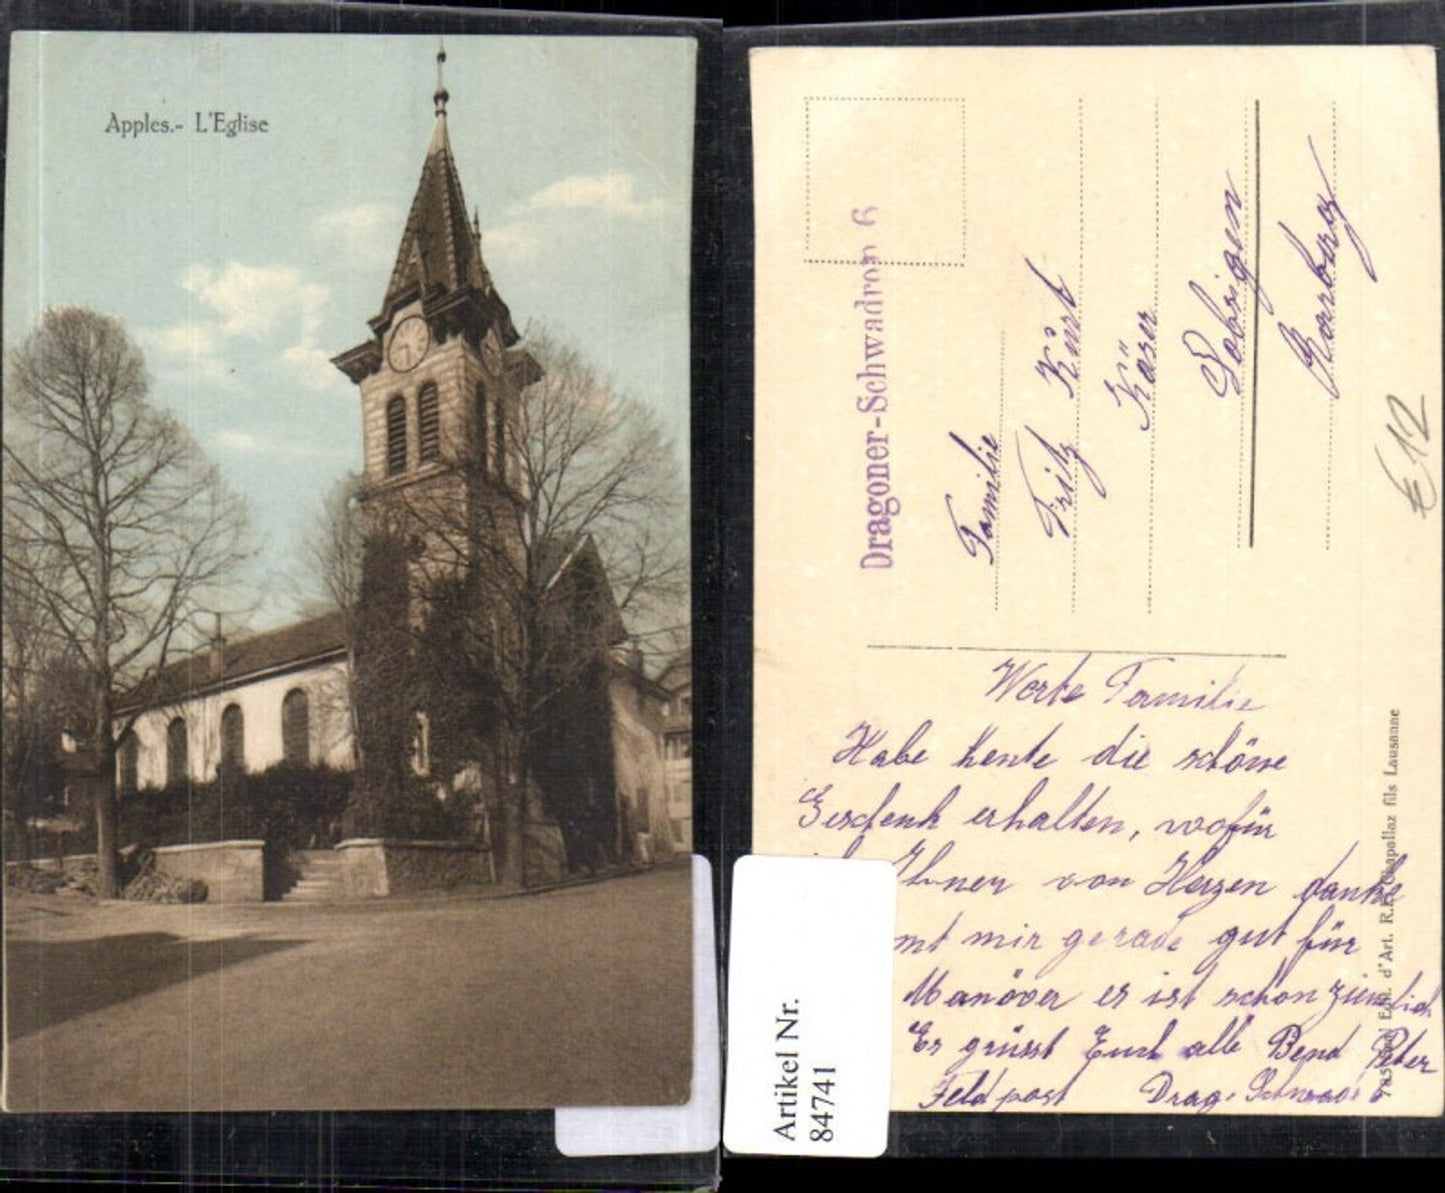 Apples.- L'Eglise
Dragoner-Schwadron 6
Familie
Fritz Kürt
Käser
Lobsigen
Aarberg
€12
Werte Familie
Habe heute die schöne
Geschenk erhalten, wofür
Ihnen von Herzen danke
mt mir gerade gut für
Manöver er ist schon ziemlich
Es grüsst Euch alle Bend Peter
Feldpost Drag. Schwad 6
Edit. d'Art. R. Chapallaz fils Lausanne
Artikel Nr.
84741